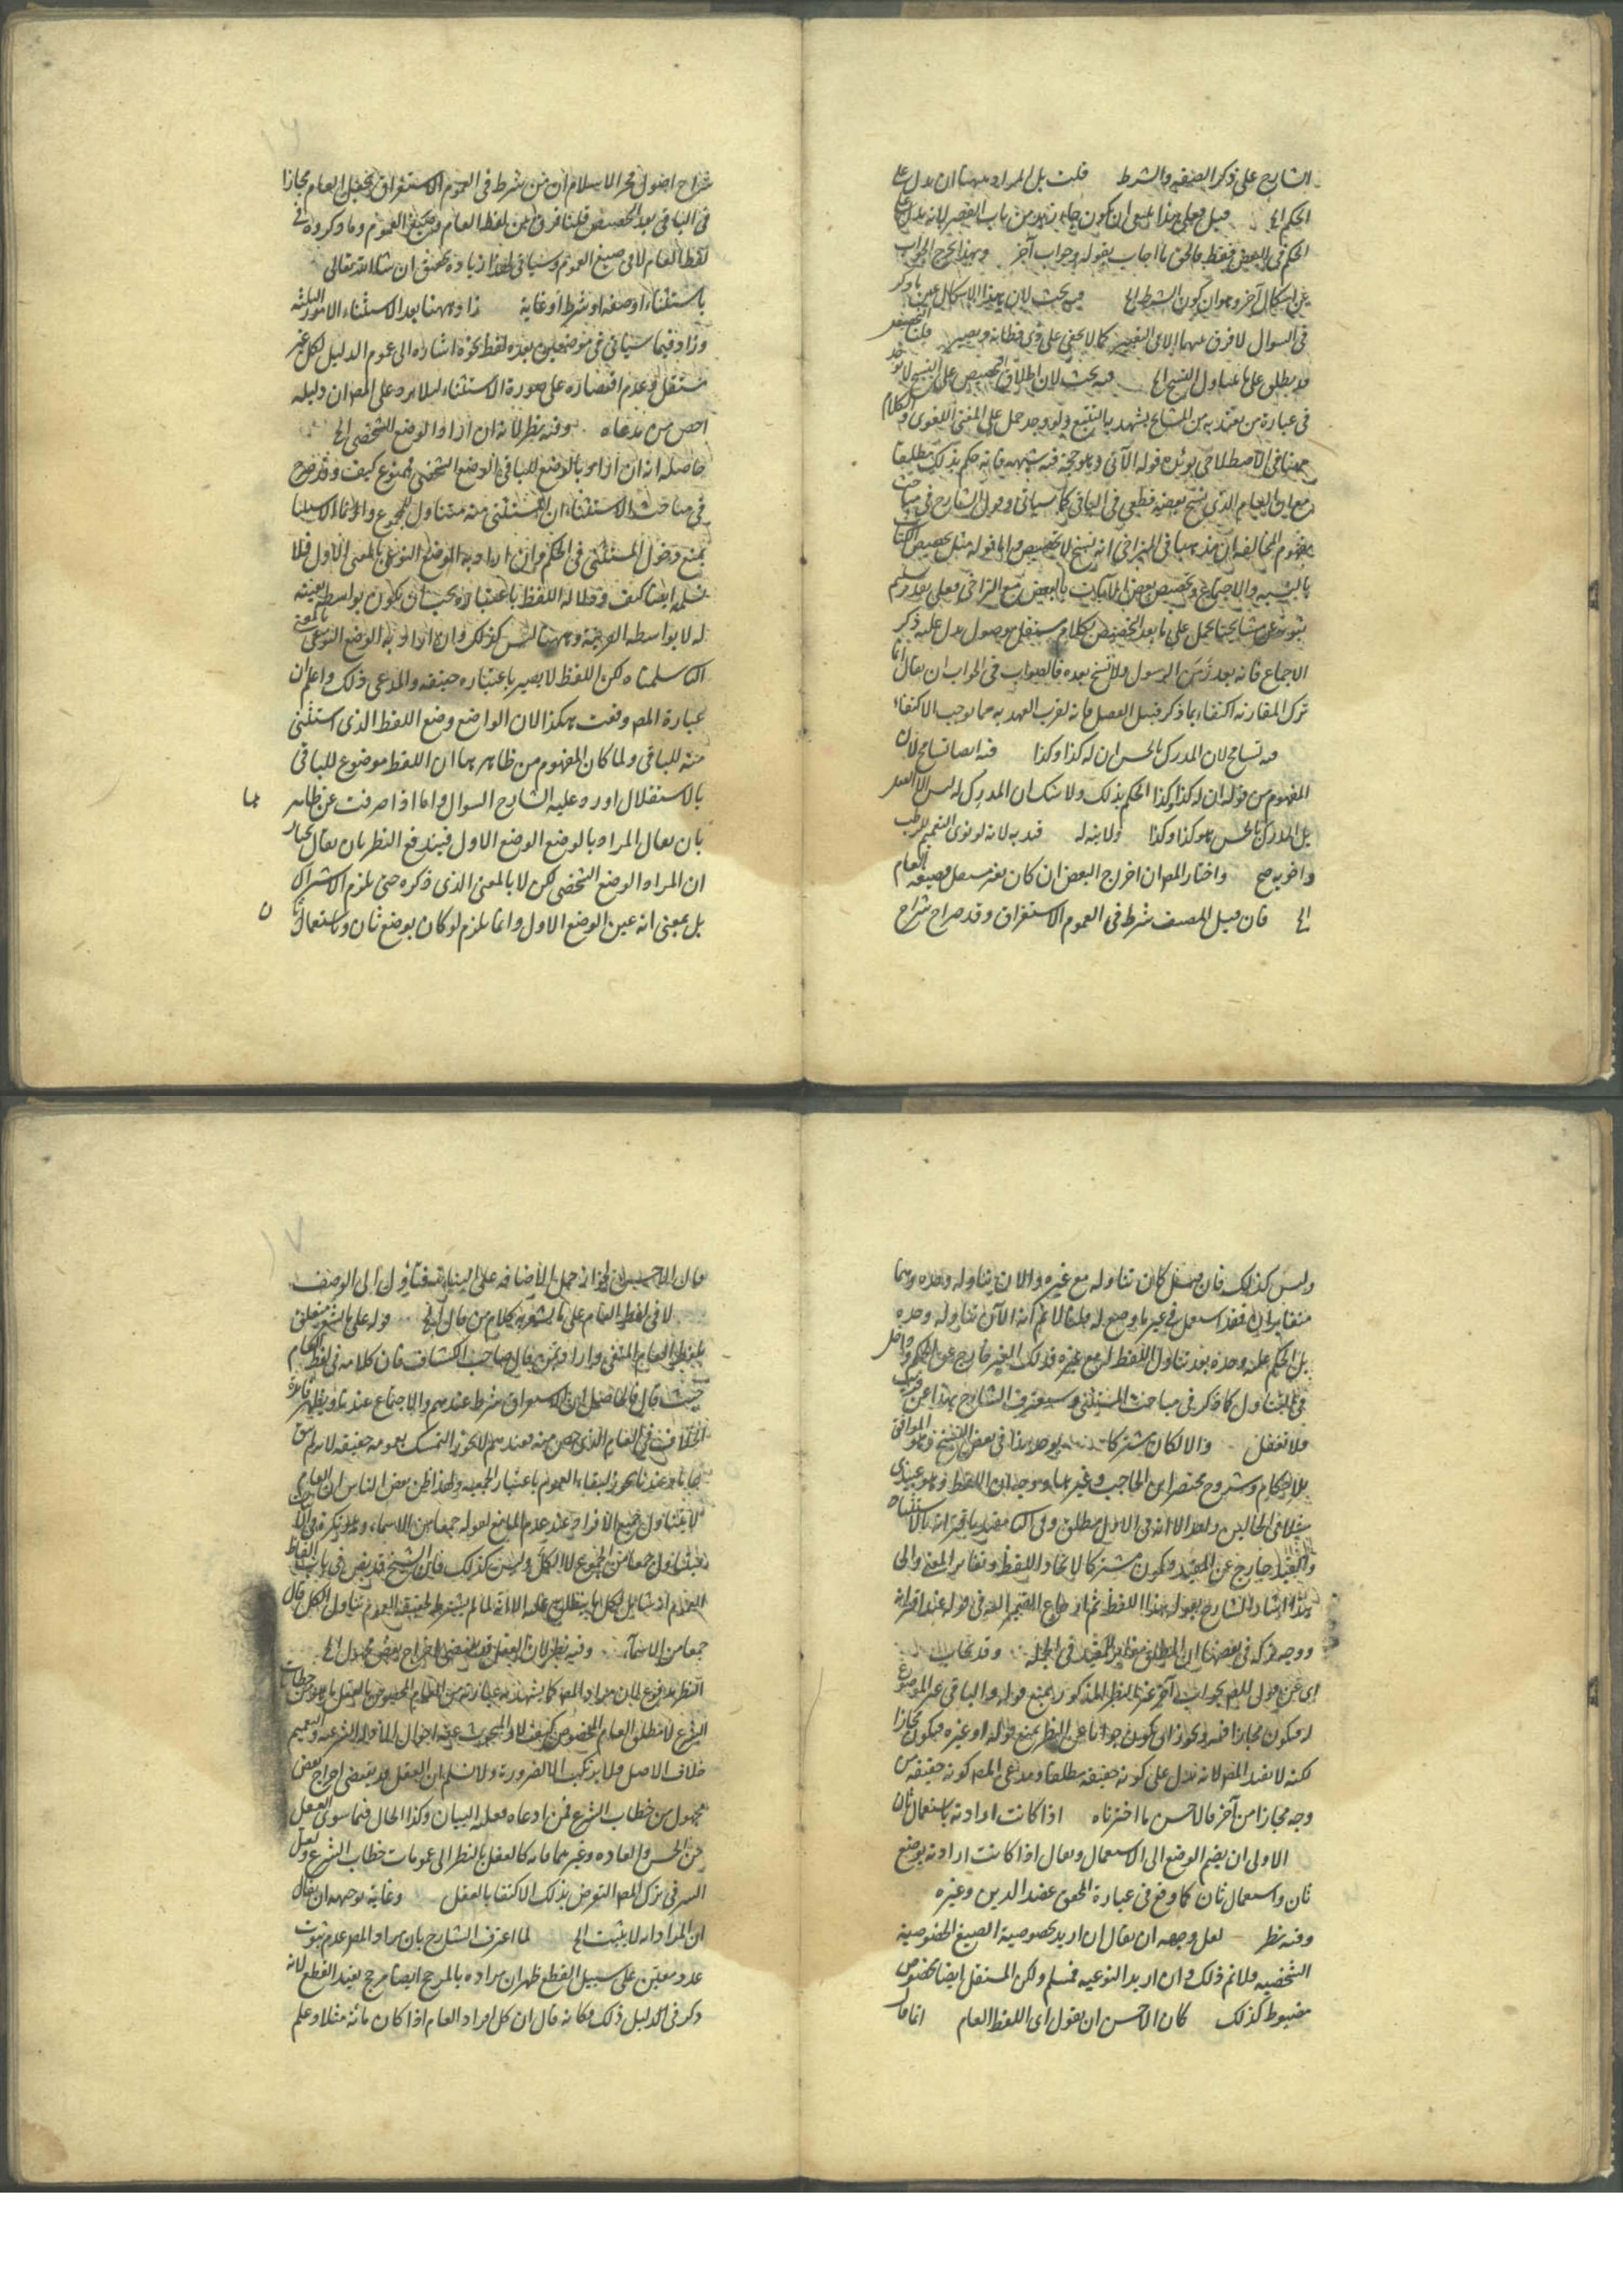 الشارح على ذكر الصفة والشرط قلت بل المراد ههنا ان يدل على
الحكم الخ قيل فعلى هذا ينبغي ان يكون جاءني زيد من باب القصر لانه يدل على
الحكم في البعض فقط فالحق ما اجاب بقوله وجواب آخر وبهذا خرج الجواب
عن اشكال آخر وهو ان كون الشرط الخ فيه بحث لان هذا الاشكال عين ما ذكر
في السوال لا فرق بينهما الا في التعبير كما لا يخفى على ذوي فطانة وبصير
قد يطلق على ما يتناول النسخ الخ فيه بحث لان اطلاق التخصيص على النسخ لا يوجد
في عبارة من يعتد به من المشايخ يشهد به التتبع ولو وجد حمل على المعنى اللغوي والكلام
ههنا في الاصطلاحي يؤيده قوله الآتي وهو حجة فيه شبهة فانه حكم بذلك مطلقا
مع ان العام الذي نسخ بعضه قطعي في الباقي كما سياتي وقول الشارح في مباحث
مفهوم المخالفة ان مذهبنا في المتراخي انه نسخ لا تخصيص واما قوله مثل تخصيص الكتاب
بالسنة والاجماع وتخصيص بعض الآيات بالبعض مع التراخي فعلى تقدير تسليم
ثبوته عن مشايخنا يحمل على ما بعد التخصيص بكلام مستقل موصول يدل عليه ذكر
الاجماع فانه بعد زمن الرسول ولا نسخ بعده فالصواب في الجواب ان يقال انما
ترك المقارنة اكتفاء بما ذكر قبيل الفصل فانه لقرب العهد به مما يوجب الاكتفاء
فيه تسامح لان المدرك بالحس ان له كذا وكذا فيه ايضا تسامح لان
المفهوم من قوله ان له كذا وكذا الحكم بذلك ولا شك ان المدرك له ليس الا العقل
بل المدرك بالحس هو كذا وكذا ولا ينه له قيد به لانه لو نوى التعميم للرطب
واخويه صح واختار المص ان اخرج البعض ان كان بغير مستقل فصيغة العام
الخ فان قيل المصنف شرط في العموم الاستغراق وقد صرح شراح
شراح اصول فخر الاسلام ان من شرط في العموم الاستغراق يجعل العام مجازا
في الباقي بعد التخصيص قلنا فرق بين لفظ العام وصيغ العموم وما ذكروه في
لفظ العام لا في صيغ العموم وسياتي لهذا زيادة تحقيق ان شاء الله تعالى
باستثناء او صفة او شرط او غاية زاد ههنا بعد الاستثناء الامور الثلثة
وزاد فيما سياتي في موضعين بعده لفظ نحوه اشارة الى عموم الدليل لكل غير
مستقل وعدم اقتصاره على صورة الاستثناء ليلا يرد على المص ان دليله
اخص من مدعاه وفيه نظر لانه ان اراد الوضع الشخصي الخ
حاصله انه ان اراد بالوضع للباقي الوضع الشخصي فممنوع كيف وقد صرح
في مباحث الاستثناء ان المستثنى منه متناول للمجموع وانما الاستثنا
يمنع دخول المستثنى في الحكم وان اراد به الوضع النوعي بالمعنى الاول فلا
نسلمه ايضا كيف ودلالة اللفظ باعتباره يجب ان يكون بواسطة تعينه
له لا بواسطة القرينة وههنا ليس كذلك وان اراد به الوضع النوعي بالمعنى
الثا سلمناه لكن اللفظ لا يصير باعتباره حقيقة والمدعى ذلك واعلم ان
عبارة المص وقعت هكذا لان الواضع وضع اللفظ الذي استثنى
منه للباقي ولما كان المفهوم من ظاهرها ان اللفظ موضوع للباقي
بالاستقلال اورد عليه الشارح السوال واما اذا صرفت عن ظاهرها
بان يقال المراد بالوضع الوضع الاول فيندفع النظر بان يقال نختار
ان المراد الوضع الشخصي لكن لا بالمعنى الذي ذكره حتى يلزم الاشتراك
بل بمعنى انه عين الوضع الاول وانما يلزم لو كان بوضع ثان واستعمال ثان
وليس كذلك فان قيل كان تناوله مع غيره والان يتناوله وحده وهما
متغايران فقد استعمل في غير ما وضع له قلنا لا نم انه الآن تناوله وحده
بل الحكم عليه وحده بعد تناول اللفظ له مع غيره فذلك الغير خارج عن الحكم داخل
في التناول كما ذكر في مباحث المستثنى وسيعترف الشارح بهذا عن قريب
فلا تغفل والا لكان مشتركا يوجد هذا في بعض النسخ وهو الموافق
للاحكام وشروح مختصر ابن الحاجب وغيرها
والقيد خارج عن المقيد فيكون مشتركا لاتحاد اللفظ وتغاير المعنى والى
هذا اشار الشارح بقوله هذا اللفظ ثم ارجاع الضمير اليه في قوله عند اقترانه
ووجه تركه في بعضها ان المطلق مغاير للمقيد في الجملة وقد يجاب
اي عن قول المص بجواب آخر غير النظر المذكور بمنع قوله والباقي غير الموضوع
له فيكون مجازا فيه ويجوز ان يكون جوابا عن النظر بمنع قوله او غيره فيكون مجازا
لكنه لا يفيد المص لانه يدل على كونه حقيقة مطلقا ومدعى المص كونه حقيقة من
وجه مجازا من آخر فالاحسن ما اخترناه اذا كانت ارادته باستعمال ثان
الاولى ان يضم الوضع الى الاستعمال ويقال اذا كانت ارادته بوضع
ثان واستعمال ثان كما وقع في عبارة المحقق عضد الدين وغيره
وفيه نظر لعل وجهه ان يقال ان اريد بخصوصية الصيغ الخصوصية
الشخصية فلا نم ذلك وان اريد النوعية فمسلم ولكن المستقل ايضا مخصوص
مضبوط كذلك كان الاحسن ان يقول اي اللفظ العام انما قال
لا في لفظ العام على ما يشعر به كلام من قال الخ قوله على ما يشعر متعلق
بلفظ العام المنفي واراد بمن قال صاحب الكشاف فان كلامه في لفظ العام
حيث قال فالحاصل ان الاستغراق شرط عندهم والاجتماع عندنا ويظهر فائدة
الخلاف في العام الذي خص منه فعندهم لا يجوز التمسك بعمومه حقيقة لانه لم يبق
عاما وعندنا يجوز لبقاء العموم باعتبار الجمعية ولهذا ظن بعض الناس ان العام
لا يتناول جميع الافراد عند عدم المانع لقوله جمعا من الاسماء وهو نكرة في الاثبات
فيتناول جمعا من الجموع لا الكل وليس كذلك فان الشيخ قد نص في باب الفاظ
العموم
جمعا من الاسماء وفيه نظر لان العقل قد يقتضي اخراج بعض مجهول الخ
النظر مدفوع لان مراد المص كما يشهد به عبارته من العام المخصوص بالعقل ما هو من خطابات
الشرع لا مطلق العام المخصوص كيف لا والمبحوث عنه احوال الادلة الشرعية والتعميم
خلاف الاصل فلا يرتكب الا لضرورة ولا نسلم ان العقل قد يقتضي اخراج بعض
مجهول من خطاب الشرع فمن ادعاه فعليه البيان وكذا الحال فيما سوى العقل
من الحس والعادة وغيرهما فانه كالعقل بالنظر الى عمومات خطاب الشرع ولعل
السر في ترك المص التعرض بذلك الاكتفا بالعقل وغاية توجيهه ان يقال
ان المراد انه لا يثبت الخ لما اعترف الشارح بان مراد المص عدم ثبوت
عدد معين على سبيل القطع ظهر ان مراده بالمرجح ايضا مرجح يفيد القطع لانه
ذكر في الدليل ذلك فكانه قال ان كل افراد العام اذا كان مائة مثلا وعلم